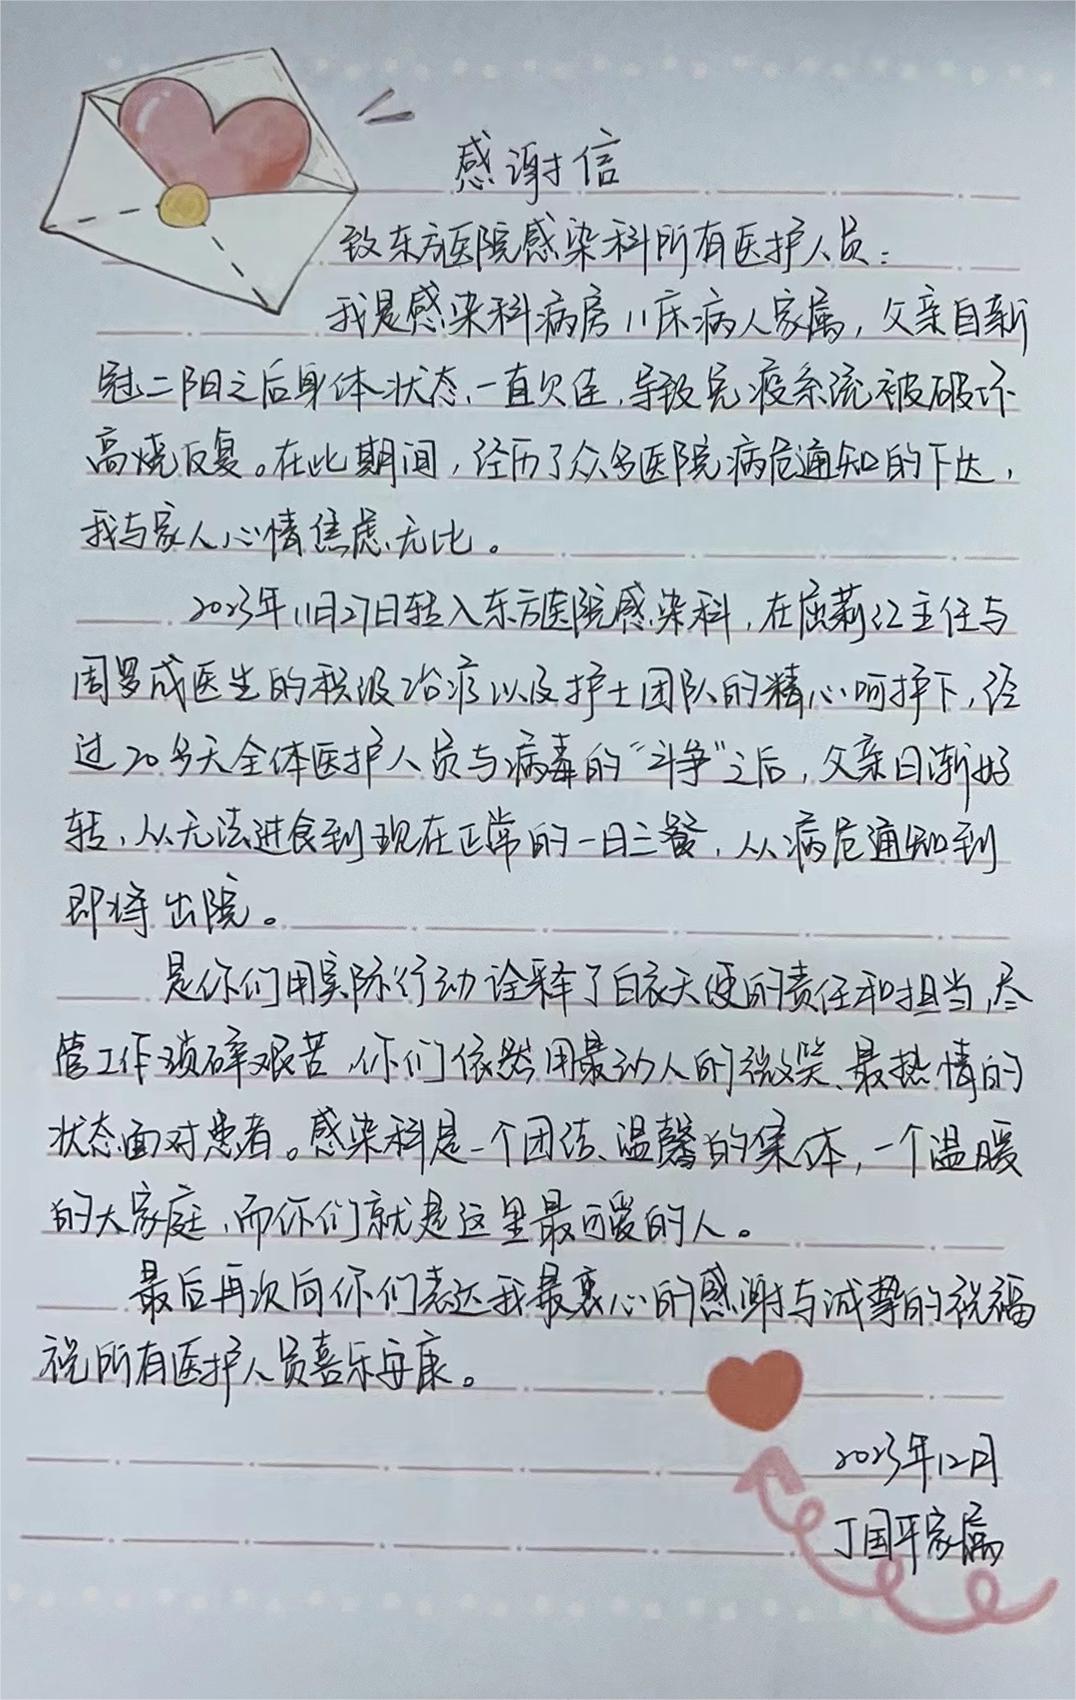 感谢信
致东方医院感染科所有医护人员：
我是感染科病房11床病人家属，父亲自新
冠二阳之后身体状态一直欠佳，导致免疫系统被破坏
高烧反复。在此期间，经历了众多医院病危通知的下达，
我与家人心情焦虑无比。
2023年11月27日转入东方医院感染科，在屈莉红主任与
周罗成医生的积极治疗以及护士团队的精心呵护下，经
过20多天全体医护人员与病毒的“斗争”之后，父亲日渐好
转，从无法进食到现在正常的一日三餐，从病危通知到
即将出院。
是你们用实际行动诠释了白衣天使的责任和担当，尽
管工作琐碎艰苦，你们依然用最动人的微笑、最热情的
状态面对患者。感染科是一个团结、温馨的集体，一个温暖
的大家庭，而你们就是这里最可爱的人。
最后再次向你们表达我最衷心的感谢与诚挚的祝福
祝所有医护人员喜乐安康。
2023年12月
丁国平家属